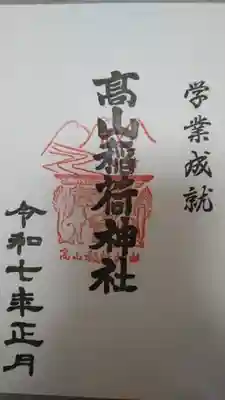 学業成就
髙山稲荷神社
令和七年正月